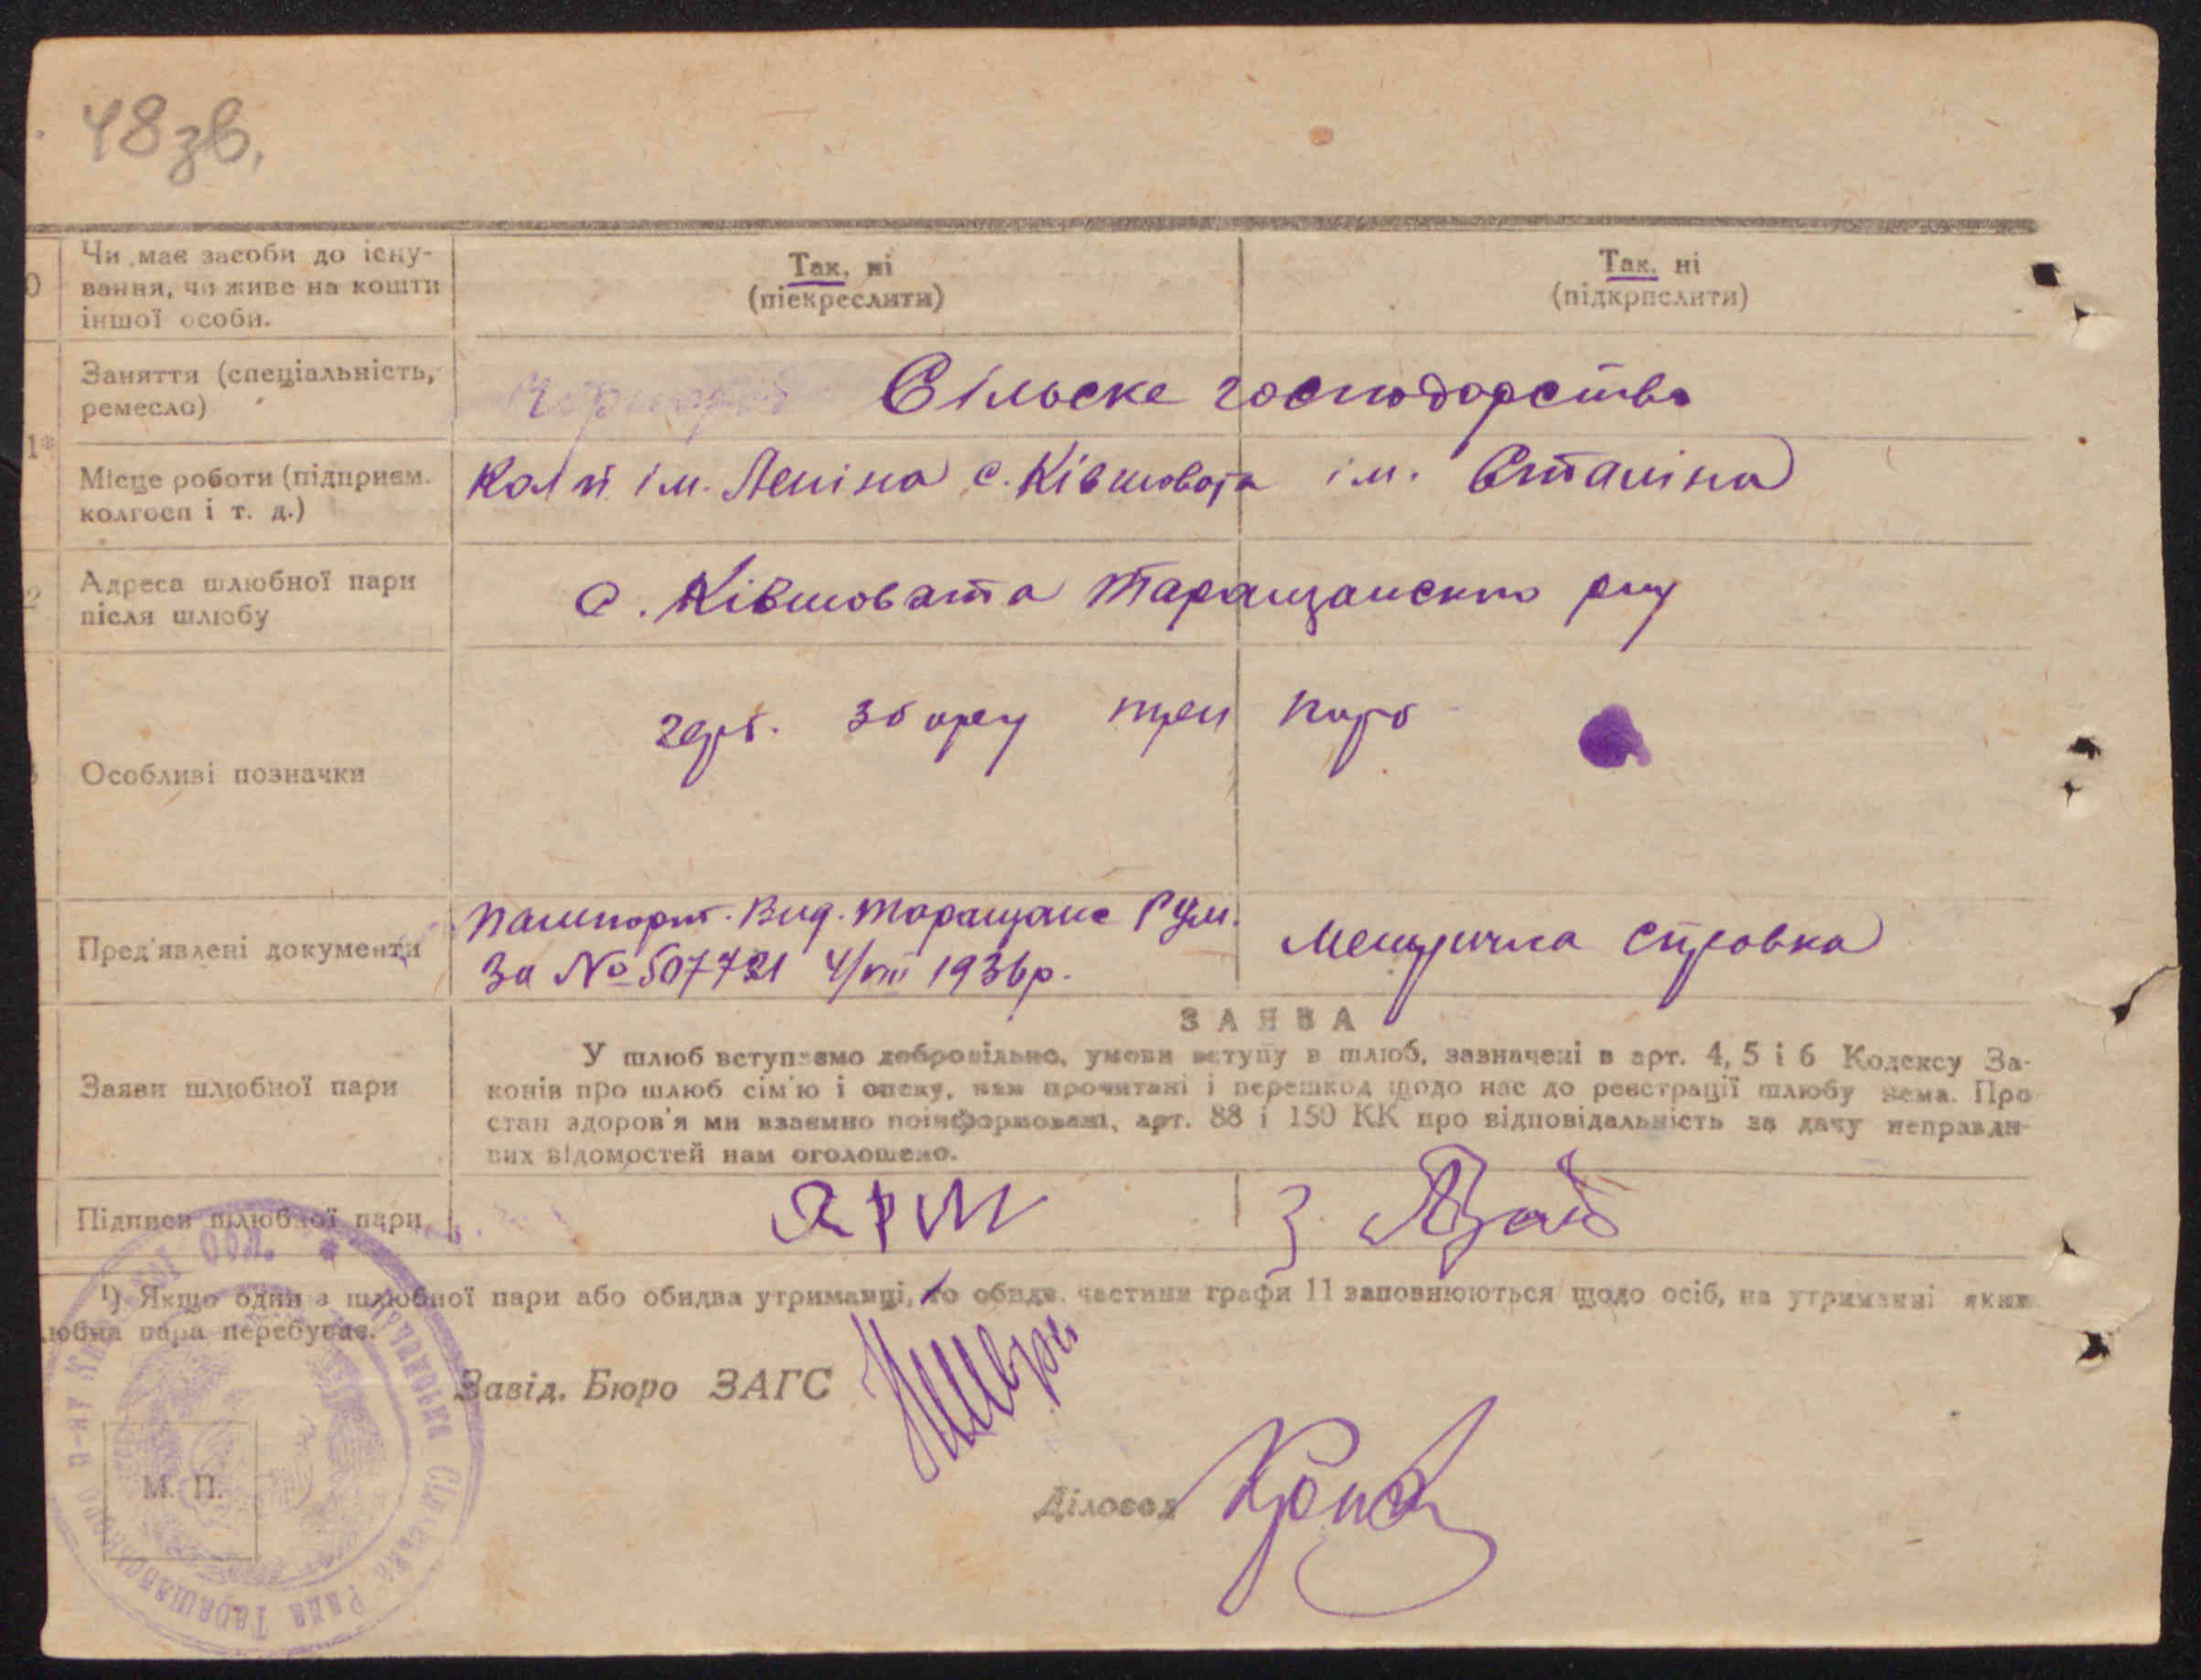 48зв.
Чи має засоби до існу-
вання, чи живе на кошти
іншої особи.
Так, ні
(піекреслити)
Так, ні
(підкрпслити)
Заняття (спеціальність,
ремесло)
Сільске господорство
1*
Місце роботи (підприєм.
колгосп і т. д.)
Кол п ім. Леніна с. Ківшовата
ім. Сталіна
2
Адреса шлюбної пари
після шлюбу
с. Ківшовата Таращанского р-ну
Особливі позначки
герб. збору три карб
Пред'явлені документи
Пашпорт. Вид. Таращанс РУМ.
За № 507721 4/VIII 1936р.
справка
ЗАЯВА
Заяви шлюбної пари
У шлюб вступаємо добровільно, умови вступу в шлюб, зазначені в арт. 4, 5 і 6 Кодексу За-
конів про шлюб сім'ю і опеку, нам прочитані і перешкод щодо нас до реєстрації шлюбу нема. Про
стан здоров'я ми взаємно поінформовані, арт. 88 і 150 КК про відповідальність за дачу неправди-
вих відомостей нам оголошено.
Підписи шлюбної пари
ЯРМ
¹) Якщо один з шлюбної пари або обидва утриманці, то обидв. частини графи 11 заповнюються щодо осіб, на утриманні яких
любна пара перебуває.
Завід. Бюро ЗАГС
М. П.
Діловод
Сільська Рада Таращанського р-ну Київської